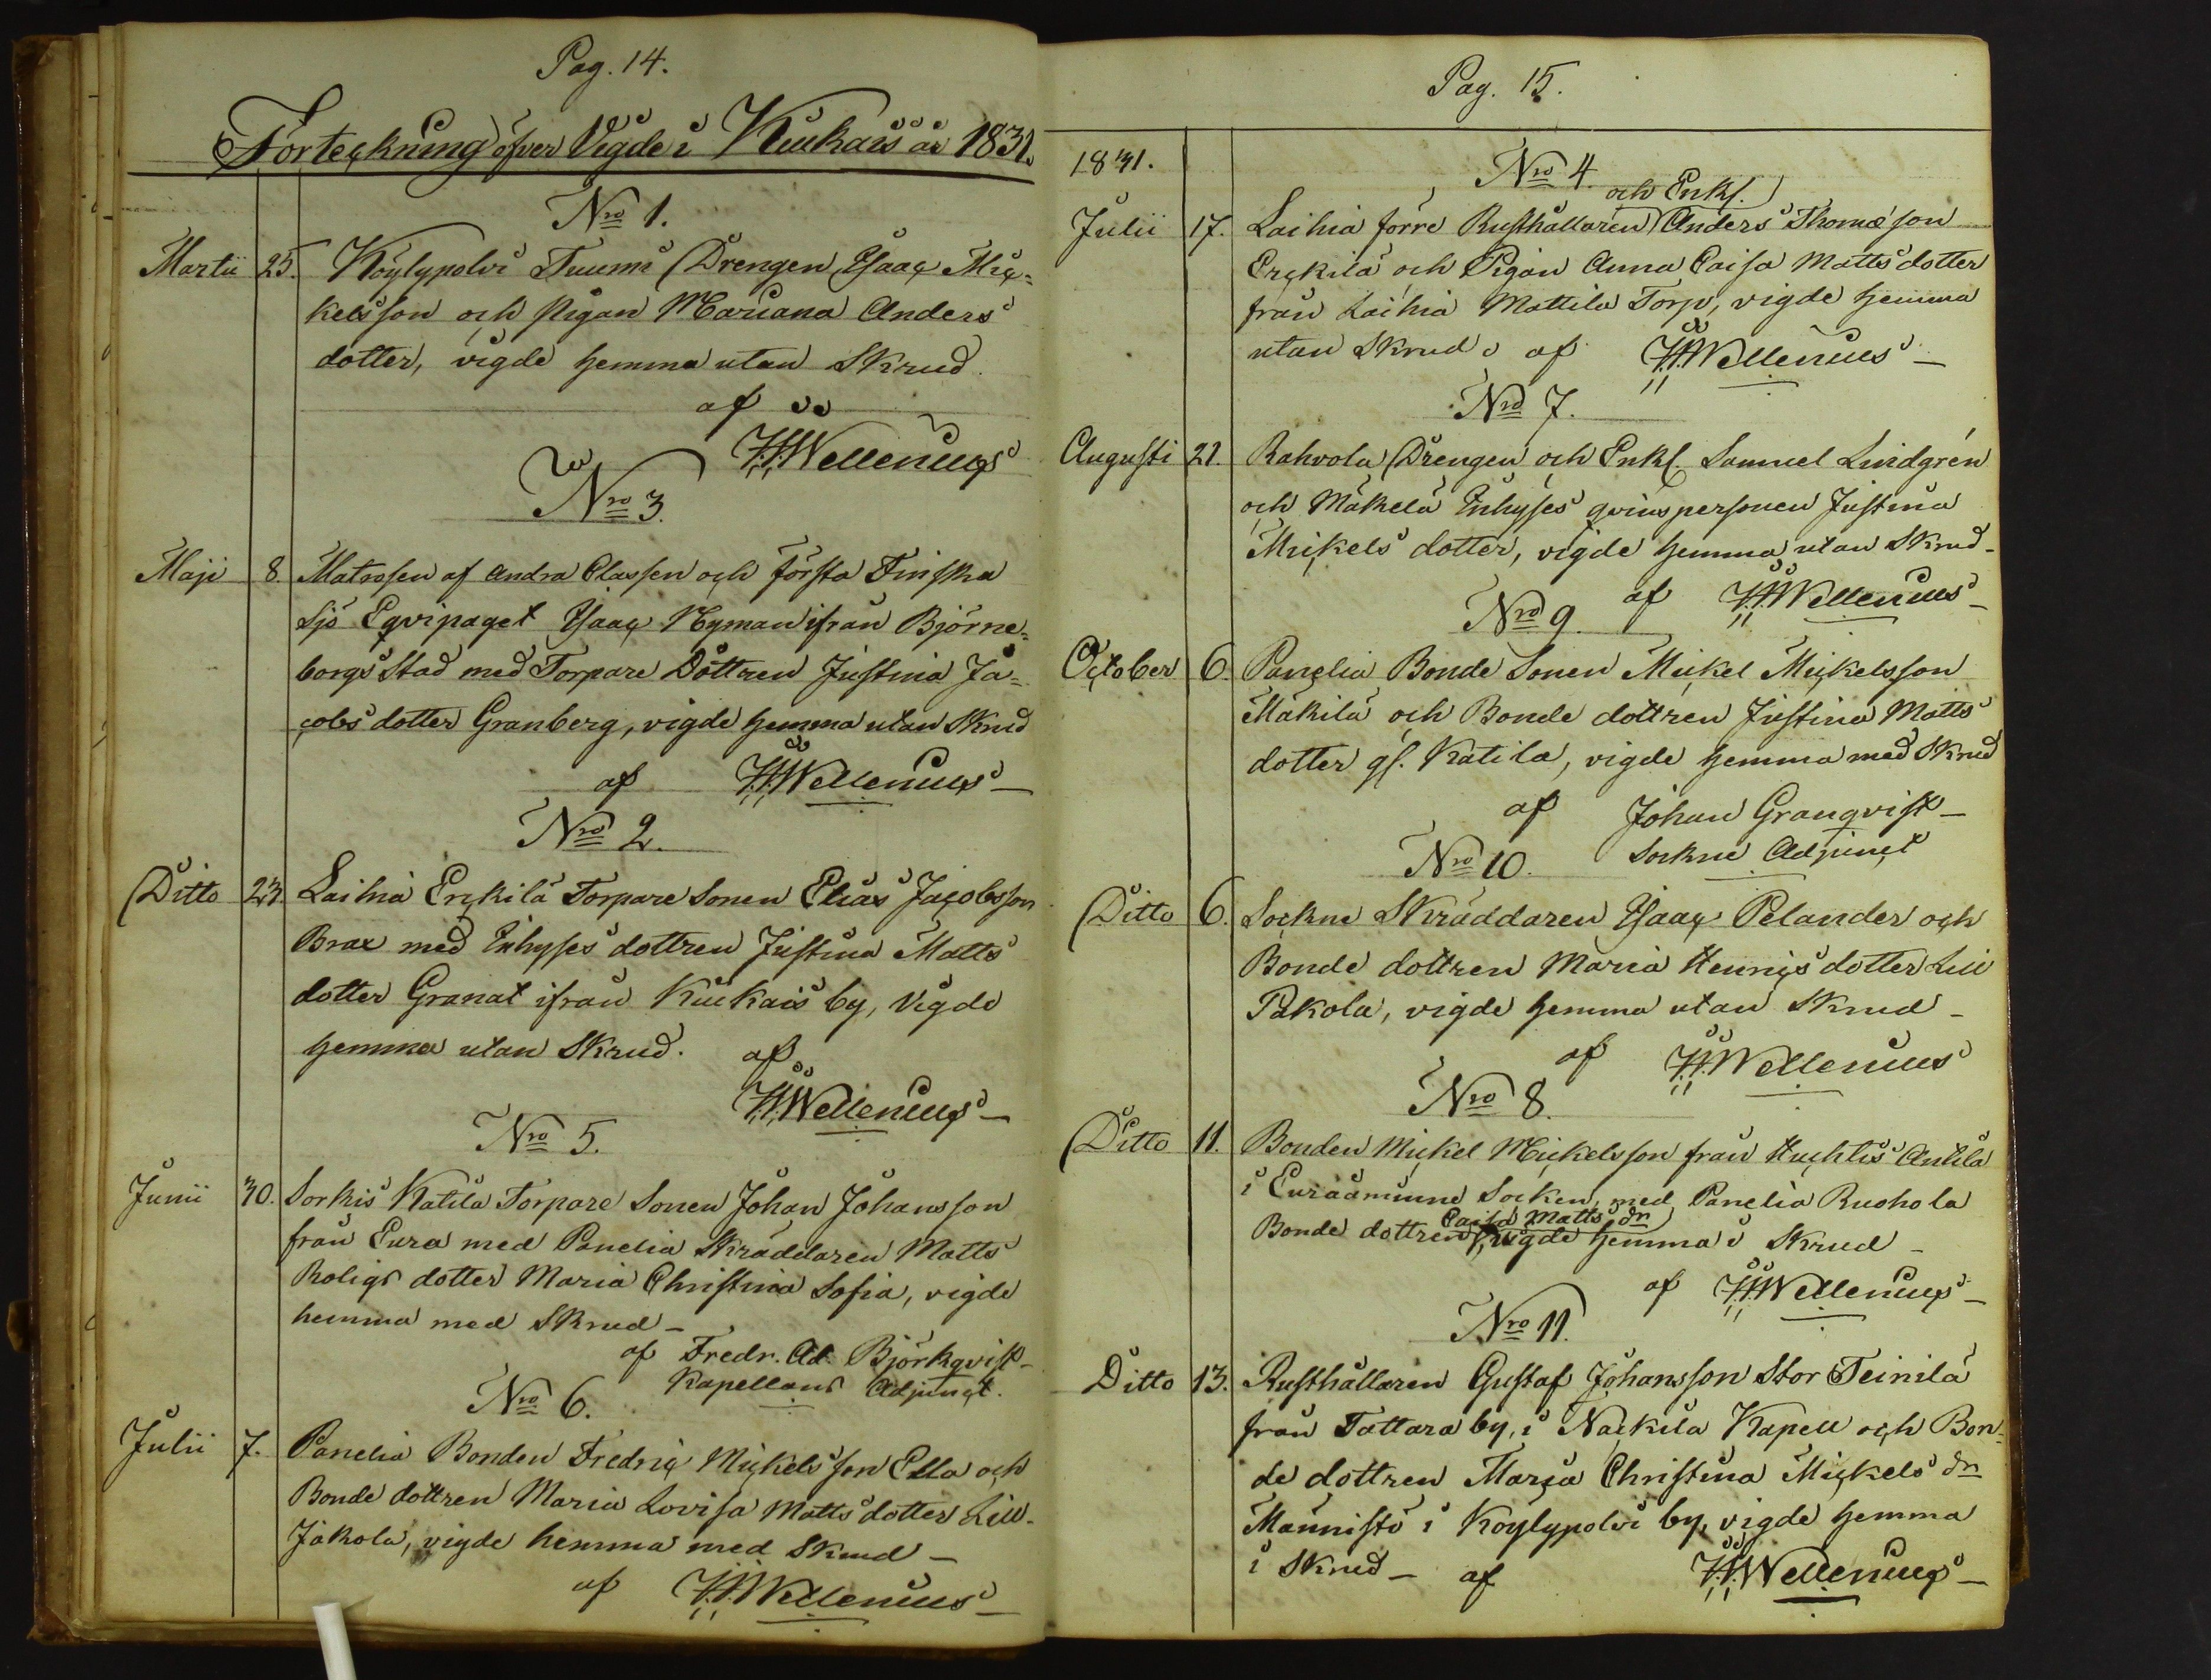 Pag. 14.
Förteckning öfver Vigde i Kiukais år 1831.
Nro 1.
Martii 25. Köylypolvi Tuumi Drengen Isaac Mic=
kelsson och pigan Mariana Anders
dotter, vigde hemma utan Skrud
af
H. Wellenius
Nro 3.
Maji 8. Matrosen af andra Classen och första Finska
Sjö Eqvipaget Isaac Nyman ifrån Björne=
borgs Stad med Torpare Dottren Justina Ja=
cobs dotter Granberg, vigde hemma utan Skrud
af H. Wellenius
Nro 2.
Ditto 23. Laihia Erckilä Torpare Sonen Elias Jacobsson
Brax med Inhyses dottren Justina Matts
dotter Granat ifrån Kiukais by, Vigde
hemma utan Skrud. af
H. Wellenius
Nro 5.
Junii 30. Sorkis Katila Torpare Sonen Johan Johansson
från Eura med Panelia Skräddaren Matts
Roligs dotter Maria Christina Sofia, vigde
hemma med Skrud
af Fredr. Ad. Björkqvist
Kapellans Adjunct.
Nro 6.
Julii 7. Panelia Bonden Fredric Mickels son Ella och
Bonde dottren Maria Lovisa Matts dotter Lill-
Jakola, vigde hemma med Skrud
af H. Wellenius
Pag. 15.
1831.
Nro 4.
och Enkl.
Julii 17. Laihia förre Rusthållaren Anders Thomæ son
Erckilä och Pigan Anna Caisa Matts dotter
från Laihia Mattila Torp, vigde hemma
utan Skrud af H. Wellenius
Nro 7.
Augusti 21. Rahvola Drengen och Enkl. Samuel Lindgrén
och Mäkelä Inhyses qvinspersonen Justina
Mickels dotter, vigde hemma utan Skrud
af H. Wellenius
Nro 9.
October 6. Panelia Bonde Sonen Mickel Mickelsson
Mäkilä och Bonde dottren Justina Matts
dotter gl. Katila, vigde hemma med Skrud
af Johan Granqvist
Sockne Adjunct
Nro 10.
Ditto 6. Sockne Skräddaren Isaac Pelander och
Bonde dottren Maria Hennics dotter Lill
Pakola, vigde hemma utan Skrud
af H. Wellenius
Nro 8.
Ditto 11. Bonden Mickel Mickelsson från Huchtis Antila
i Euraåminne Socken, med Panelia Ruohola
Caisa Matts dr
Bonde dottren, vigde hemma i Skrud
af H. Wellenius
Nro 11.
Ditto 13. Rusthållaren Gustaf Johansson Stor Teinilä
från Tattara by, i Nackila Kapell och Bon=
de dottren Maria Christina Mickels dr
Männistö i Köylypolvi by, vigde hemma
i Skrud af H. Wellenius